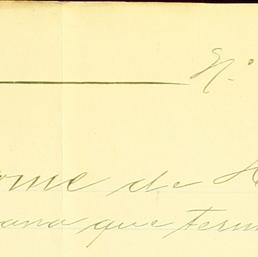 N.
ome de
ana que term